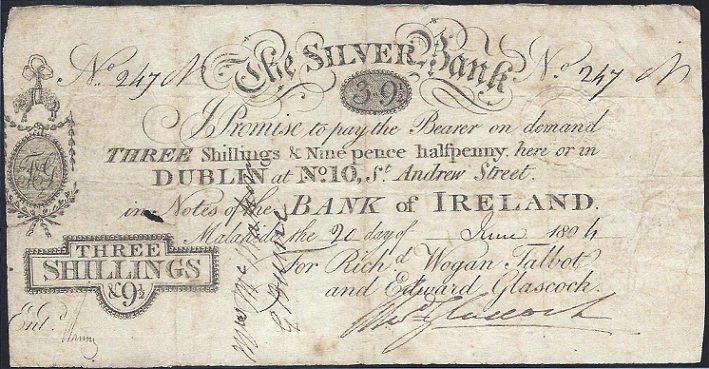 The SILVER Bank
No. 247 No. 247
3-9½
I Promise to pay the Bearer on demand
THREE Shillings & Nine pence halfpenny, here or in
DUBLIN at No. 10, St. Andrew Street.
in Notes of the BANK of IRELAND.
Malahide the 20 day of June 1804
For Richd. Wogan Talbot
and Edward Glascock.
THREE
SHILLINGS
& 9½
Engd.
Glascock